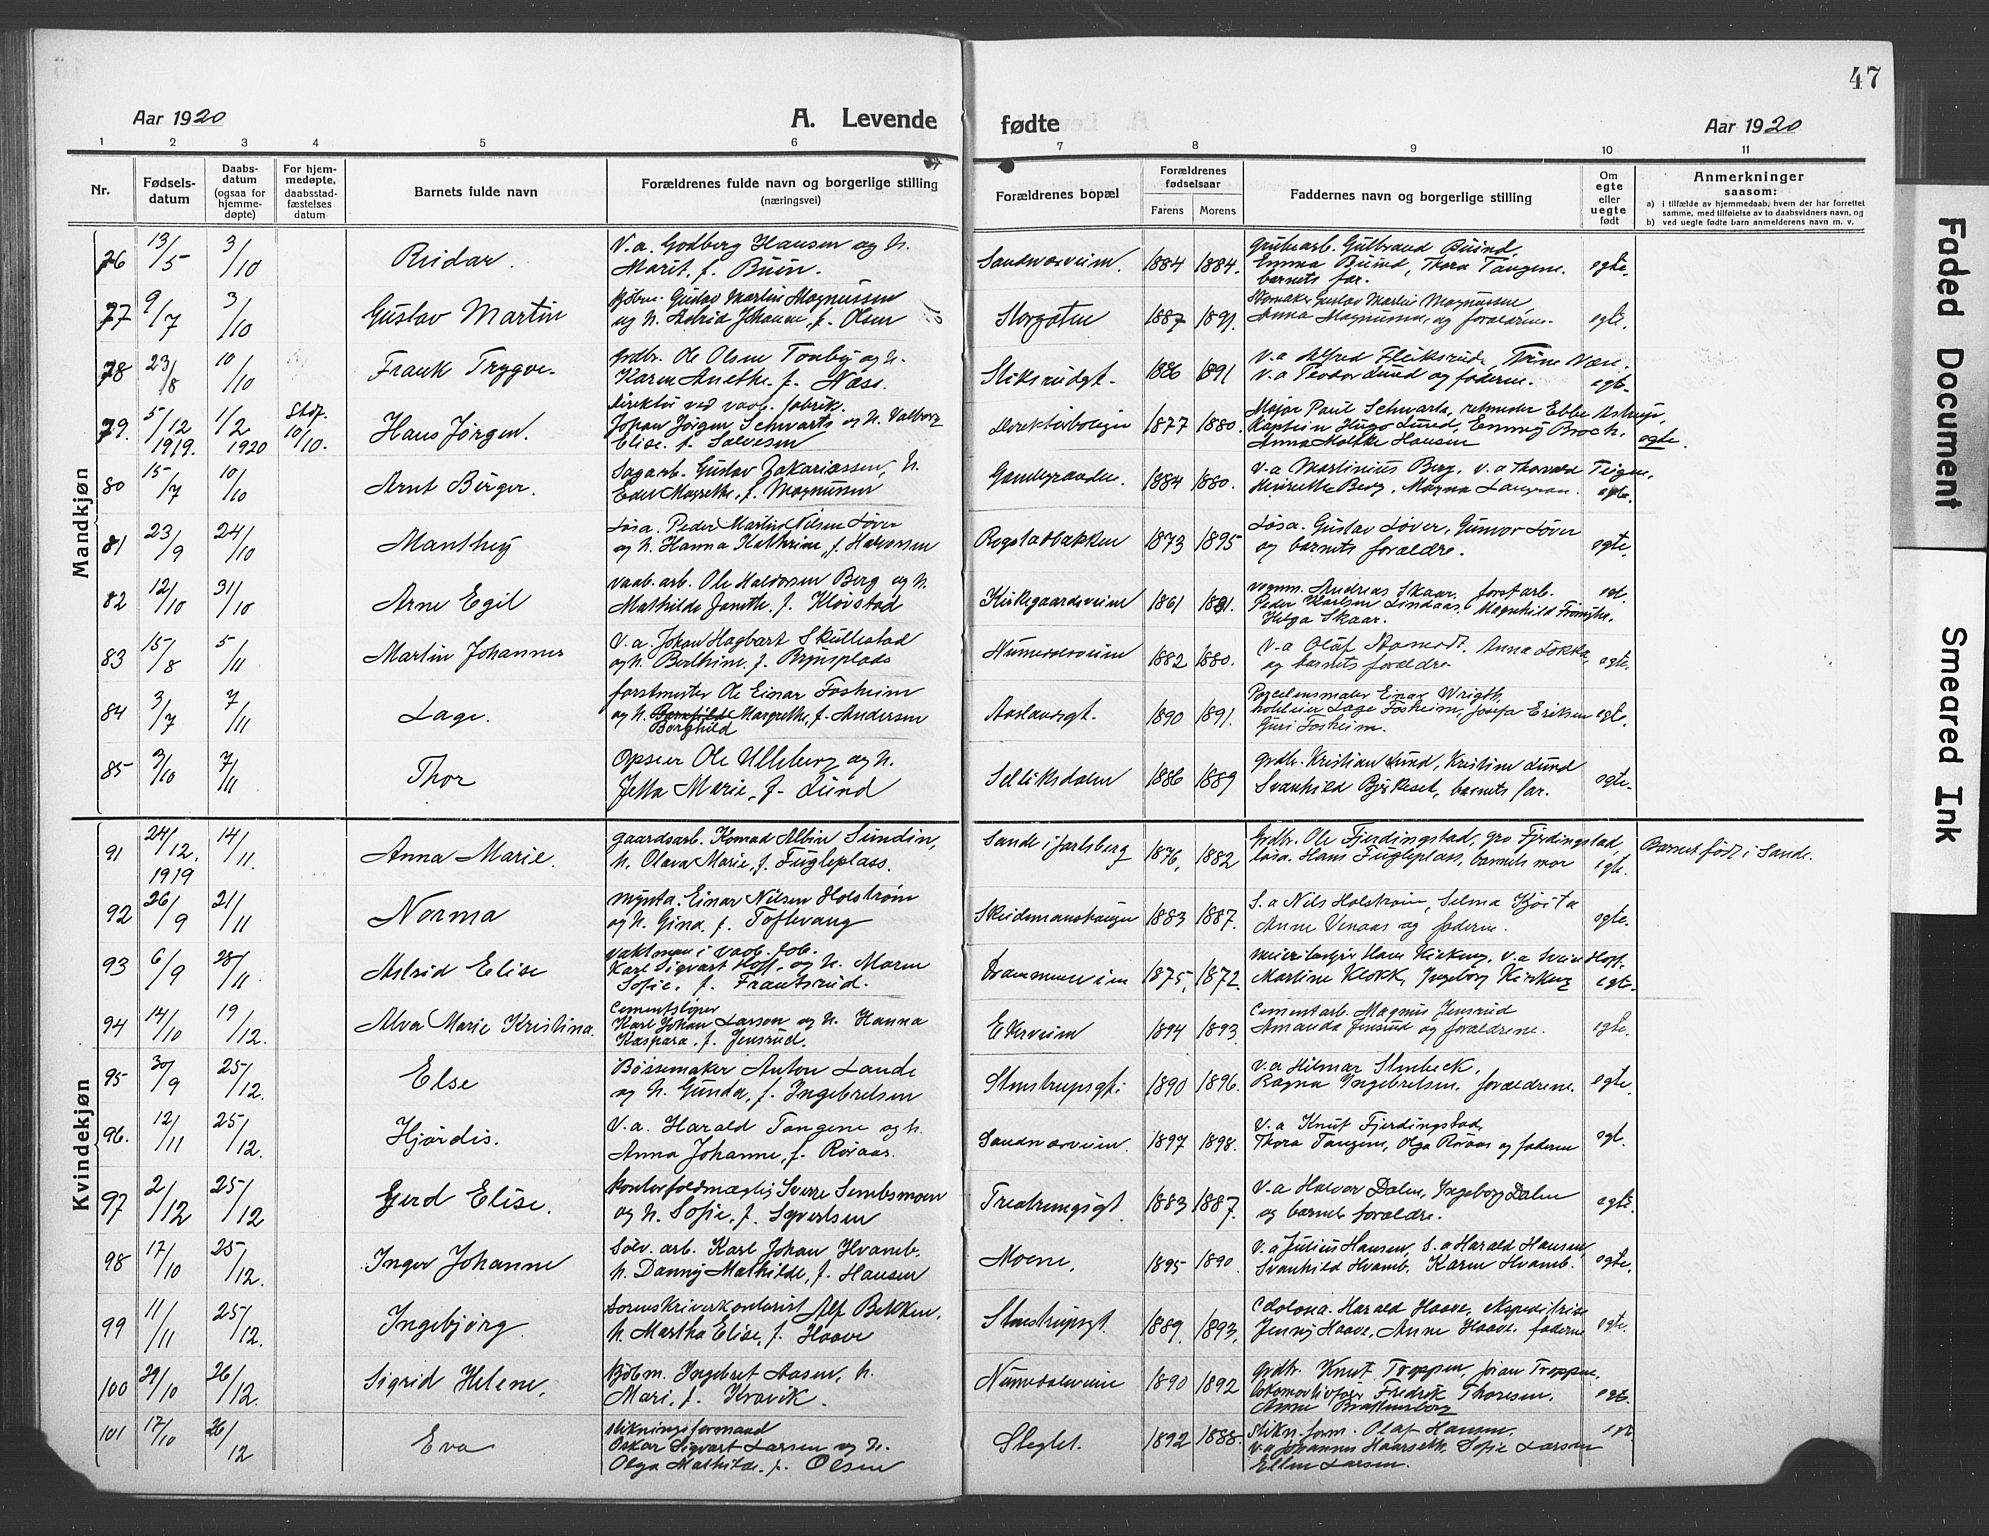 47
Aar 1920
A. Levende
fødte
Aar 1920
1 2 3 4 5 6 7 8 9 10 11
Nr.
Fødsels-
datum
Daabs-
datum
(ogsaa for
hjemme-
døpte)
For hjem-
medøpte,
daabsstad-
fæstelses
datum
Barnets fulde navn
Forældrenes fulde navn og borgerlige stilling
(næringsvei)
Forældrenes bopæl
Forældrenes
fødselsaar
Farens Morens
Faddernes navn og borgerlige stilling
Om
egte
eller
uegte
født
Anmerkninger
saasom:
a) i tilfælde av hjemmedaab, hvem der har forrettet
samme, med tilføielse av to daabsvidners navn, og
b) ved uegte fødte barn anmelderens navn m. v.
Mandkjøn
76 13/5 3/10 Reidar. V. a. Godberg Hansen og h.
Marit, f. Buin. Sandsværveien. 1884 1884. grubearb. Gulbrand Buind,
Emma Buind, Thora Tangene. egte.
barnets far.
77 9/7 3/10 Gustav Martin Gustav Martin Magnussen
og h. Astrid Johanne, f. Olsen Storgaten 1887 1891. Gustav Martin Magnussen,
Anna Magnussen, og forældrene. egte.
78 23/8 10/10 Frank Trygve. Grdbr. Ole Olsen Tonby og h.
Karen Anethe f. Næss. 1886 1891 V. a Alfred
V. a Teodor Lund og faderen. egte.
79. 5/12 1919. 1/2 1920 10/10. Hans Jørgen. Direktør ved vaab. fabrik.
Johan Jørgen Schwartz og h. Valborg
Elise f. Sølvesen 1877 1880. Major Paul Schwartz, Ebbe Astrup,
Kaptein Hugo Lund, Emmy Broch,
Anna Moltke Hansen egte.
80 15/7 10/10 Arnt Birger. Sagarb. Gustav Zakariassen, h.
Magrethe, f. Magnussen 1884 1880. V. a Martinius Berg, V. a Thorvald
Berg, Magna egte.
81 23/9 24/10 Manthey Løsa. Peder Martin Nilsen Løver
og h. Hanna Kathrine, f. Halvorsen Rogstadbakken 1873 1895 Løsa. Gustav Løver, Gunvor Løver
og barnets forældre. egte.
82 12/10 31/10 Arne Egil vaab. arb. Ole Haldorsen Berg og h.
Mathilde f. Kløvstad Kirkegaardsveien 1861 1881. vognm. Andreas Skaar, forstarb.
Peder Karlsen Lindaas,
Helga Skaar. egt.
83 15/8 5/11 Martin Johannes V. a. Johan Hagbart Skullestad
og h. Berthine, f. Numedalsveien 1882 1880. V. a Olaf Anna Løkka,
og barnets forældre egte.
84 3/7 7/11 Lage. forstmester Ole Einar Fosheim
og h. Borghild Margrethe, f. Andersen Aaslandsgt. 1890 1891. Porcelensmaler Einar Wrigth,
Lage Fosheim, Josefa Eriksen
Guri Fosheim. egte.
85 3/10 7/11 Thor Opseer Ole Ulleberg og h.
Jetta Marie, f. Lund Selliksdalen 1886 1889 grdbr. Kristian Lund, Kristine Lund
Svanhild Bjerkeset, barnets far. egte.
Kvindekjøn
91 24/12. 1919 14/11. Anna Marie. gaardsarb. Konrad Albin Sundin,
h. Olava Marie, f. Fugleplass. Sande i Jarlsberg 1876, 1882 Grdbr. Ole Fjerdingstad, Gro Fjerdingstad,
løsa. Hans Fugleplass, barnets mor egte. Barnet født i Sande.
92 26/9 21/11 Norma mynta. Einar Nilsen Holstrøm
og h. Gina, f. Toftevang 1883 1887. S. a Nils Holstrøm, Selma
Anne og faderen. egte.
93 6/9 28/11 Astrid Elise vaktman i vaab. fab.
Karl Sigvart Hoff, og h. Maren
Sofie, f. Frantsrud. Drammensveien 1875, 1872. Hans Kirkeng, V. a Svein
Martine Klokk, Ingeborg Kirkeng egte.
94 14/10 19/12. Alva Marie Kristina. Cementstøper
Karl Johan Larson og h. Hanna
Kaspara, f. Jensrud. Ekerveien 1894 1893. Cementarb. Magnus Jensrud
Amanda Jensrud og forældrene. egte.
95 30/9 25/12. Else Bøssemaker Anton Lande
og h. Gunda, f. Ingebretsen Stenstrupsgt. 1890 1896. V. a Hilmar Stenbeck,
Ragna Ingebretsen, forældrene. egte.
96. 12/11 25/12. Hjørdis. V. a. Harald Tangene og h.
Anna Johanne, f. Røraas. Sandsværveien. 1897 1898. V. a Knut Fjerdingstad,
Thora Tangene, Olga Røraas og faderen egt.
97 2/12 25/12 Gerd Elise. kontorfoldmægtig Sverre Sembsmoen
og h. Sofie, f. Syvertsen 1883 1887. V. a Halvor Dalen, Ingeborg Dalen
og barnets forældre. egte.
98 17/10 25/12. Inger Johanne Sølv. arb. Karl Johan Hvamb.
h. Danny Mathilde, f. Hansen Moene, 1895 1890. V. a Julius Hansen, S. a Harald Hansen,
Svanhild Hvamb. Karen Hvamb. egte.
99 11/11 25/12. Ingebjørg. Sorenskriverkontorist Alf Bekken,
h. Martha Elise, f. Haave Stenstrupsgt. 1889. 1893. Harald Haave, ekspeditrise
Jenny Haave, Anne Haave, faderen egte.
100 29/10 26/12. Sigrid Helene. Kjøbm. Ingebret Aasen, h.
Mari, f. Kravik. Numedalsveien 1890 1892 grdbr. Knut Troppen, Troppen,
Lokomotivfører Fredrik Thoresen,
Anne egt.
101 17/10 26/12 Eva stikningsformand
Oskar Sigvart Larsen og h.
Olga Mathilde, f. Olsen Steglet. 1892 1888. stikn. form. Olaf Hansen,
V. a Johannes Sofie Larsen
Ellen Larsen.
Faded Document
Smeared Ink